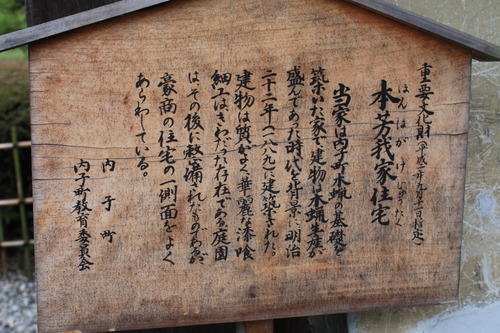 重要文化財(平成二年九月十一日指定)
本芳我家住宅
ほんはがけじゅうたく
当家は内子町木蝋の基礎を
築いた家で、建物は木蝋生産が
盛んであった時代を背景に、明治
二十二年(一八八九)に建築された。
建物は質がよく、華麗な漆喰
細工はきわだった存在である。庭園
はその後に整備されたものであるが、
豪商の住宅の一側面をよく
あらわしている。
内子町
内子町教育委員会